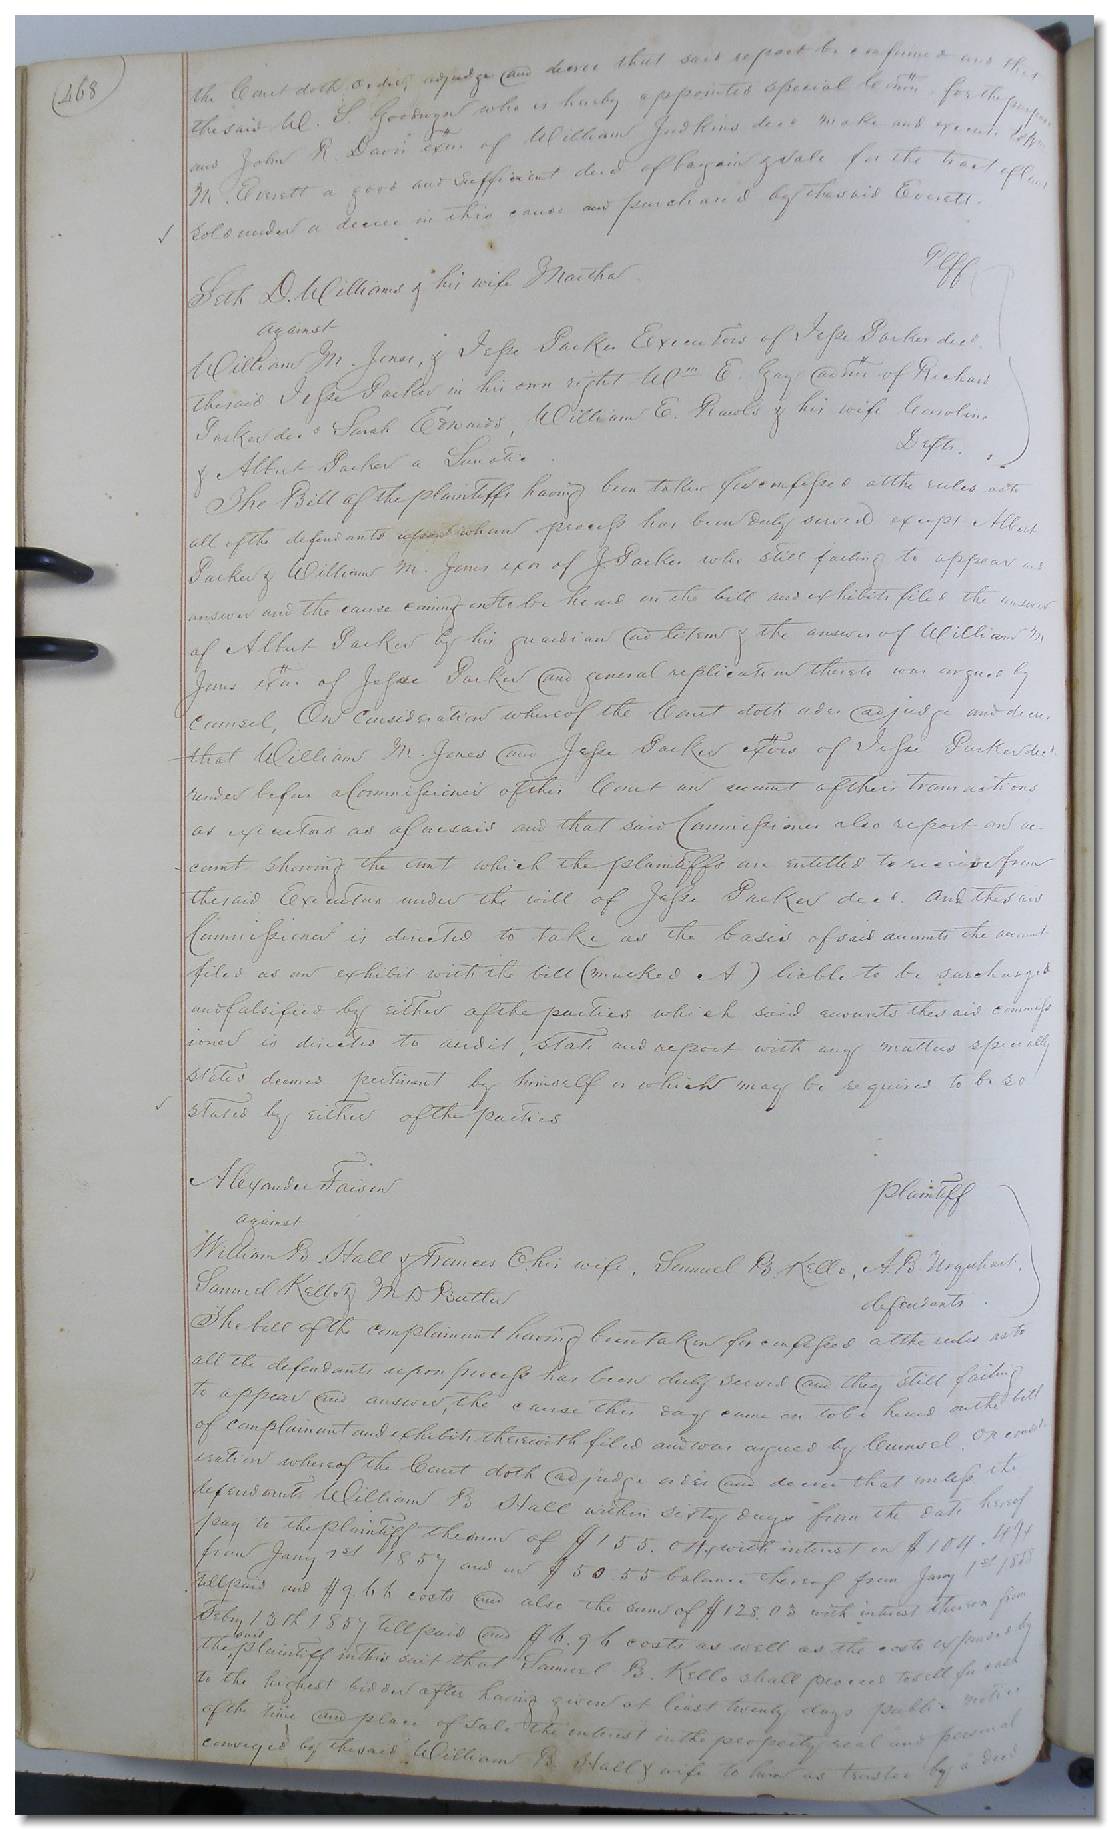 468
the Court doth order adjudge and decree that said report be confirmed and that
the said W. S. Goodwyn who is hereby appointed special Comm for the purpose
and John R. Davis exr of William Judkins decd make and execute to
M. Everett a good and sufficient deed of bargain & sale for the tract of land
sold under a decree in this cause and purchased by the said Everett.
Seth D. Williams & his wife Martha Plff
against
William M. Jones, & Jesse Parker Executors of Jesse Parker decd.
the said Jesse Parker in his own right Wm E. Gay admr of Richard
Parker decd Sarah Edwards, William E. & his wife Caroline
& Albert Parker a Lunatic. Defts.
The Bill of the plaintiffs having been taken for confessed at the rules as to
all of the defendants upon whom process has been duly served except Albert
Parker & William M. Jones exor of J Parker who still failing to appear and
answer and the cause coming on to be heard on the bill and exhibits filed the answer
of Albert Parker by his guardian ad litem & the answer of William M
Jones exor of Jesse Parker and general replication thereto was argued by
counsel, On Consideration whereof the Court doth order adjudge and decree
that William M. Jones and Jesse Parker exors of Jesse Parker decd.
render before a Commissioner of this Court an account of their transactions
as executors as aforesaid and that said Commissioner also report an ac-
count showing the amt which the plaintiffs are entitled to receive from
the said Executors under the will of Jesse Parker decd. And the said
Commissioner is directed to take as the basis of said accounts the account
filed as an exhibit with the bill (marked A) liable to be surcharged
and falsified by either of the parties which said accounts the said commiss
ioner is directed to audit, state and report with any matters specially
stated deemed pertinent by himself or which may be required to be so
stated by either of the parties
Alexander Faison plaintiff
against
William B. Hall & Frances E his wife, Samuel B. Kello, A. B. Urquhart,
Samuel Kello & M D Butler defendants.
The bill of the complainant having been taken for confessed at the rules as to
all the defendants upon process has been duly served and they still failing
to appear and answer, the cause this day came on to be heard on the bill
of complainant and exhibits therewith filed and was argued by Counsel. On consid
eration whereof the Court doth adjudge order and decree that unless the
defendants William B Hall within sixty days from the date hereof
pay to the plaintiff the sum of $155. with interest on $104.
from Jany 1st 1857 and on $50.55 balance thereof from Jany 1st 1858
till paid and $9.66 costs and also the sum of $128.03 with interest thereon from
Feby 13th 1857 till paid and $6.96 costs as well as the costs expended by
the said plaintiff in this suit that Samuel B. Kello shall proceed to sell for cash
to the highest bidder after having given at least twenty days public notice
of the time and place of sale the interest in the property real and personal
conveyed by the said William B Hall & wife to him as trustee by a deed